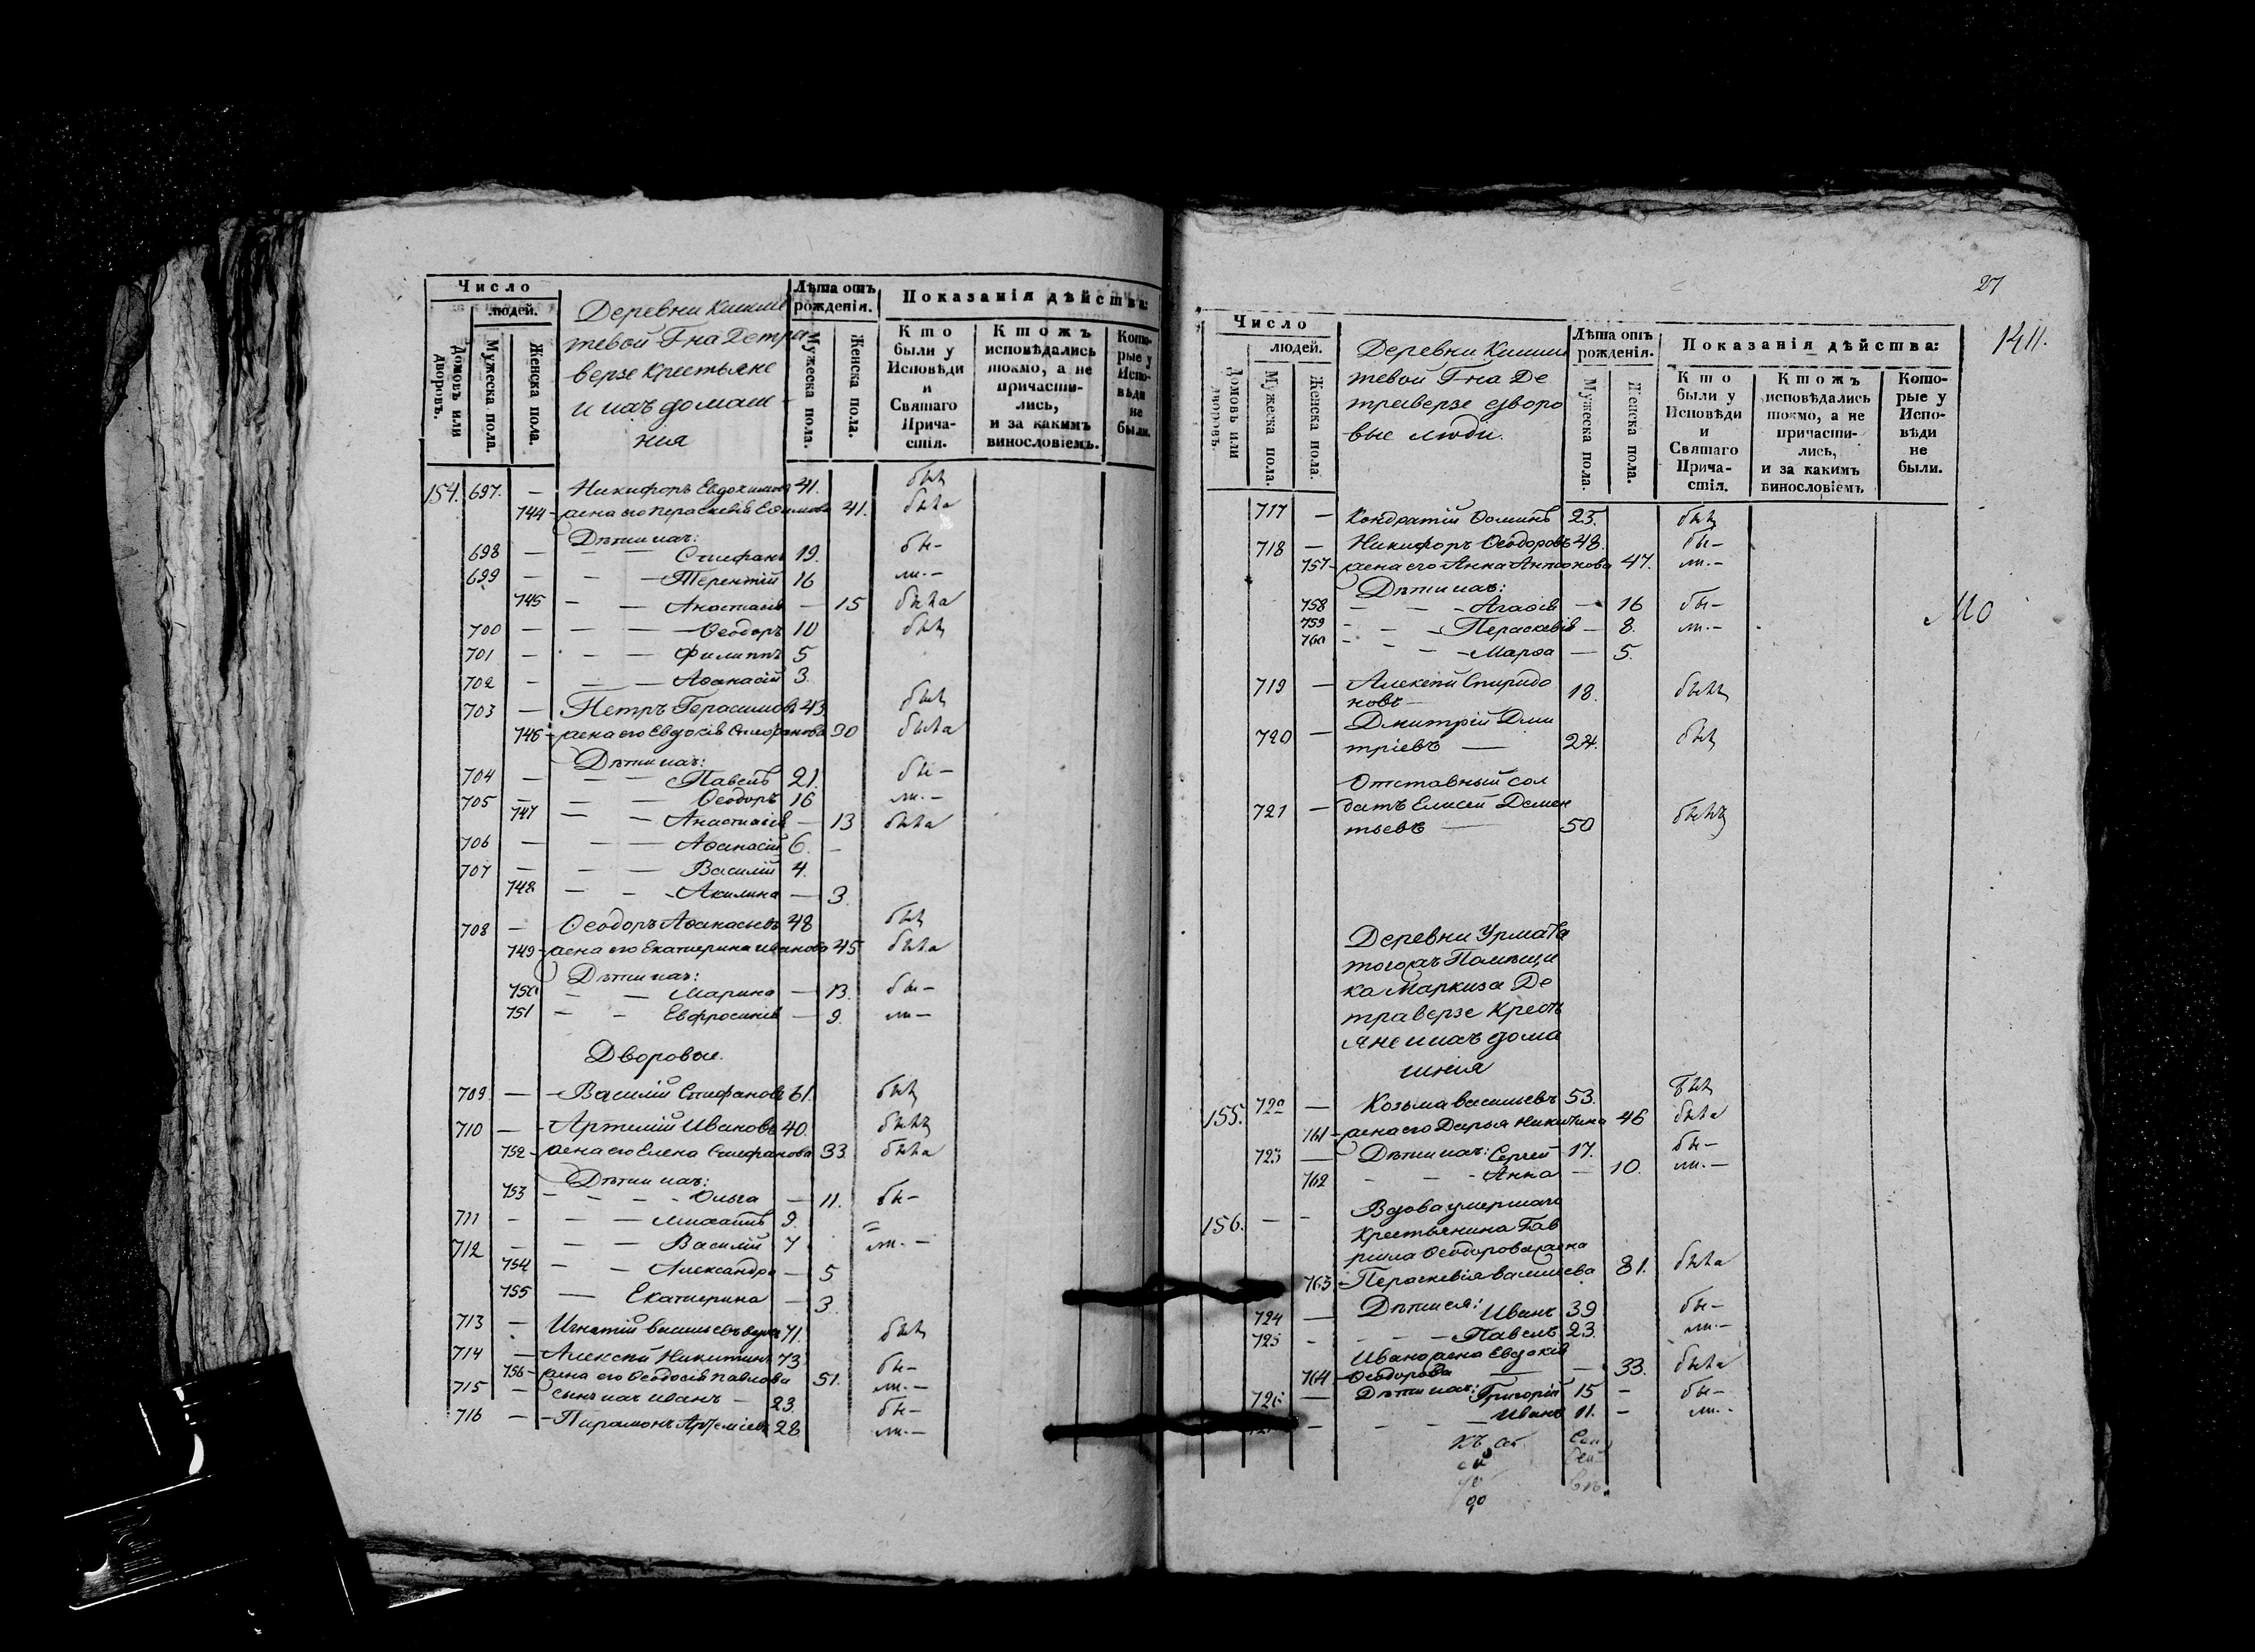 Число
людей.
Домовъ или дворовъ.
Мужеска пола.
Женска пола.
Деревни Кишме
тевой Гна Детра
верзе крестьяне
и ихъ домаш-
нія
Лѣта отъ рожденія.
Мужеска пола.
Женска пола.
Показанія дѣйства:
Кто были у Исповѣди и Святаго Причастія.
Ктожъ исповѣдались токмо, а не причастились, и за какимъ винословіемъ.
Которые у Исповѣди не были.
154. 697. — Никифоръ Евдокимовъ 41. былъ
744 - жена его Параскевія Ефимова 41. была
Дѣти ихъ:
698 — — — Стефанъ 19. бы-
699 — — — Терентій 16 ли. —
745 — — Анастасія — 15 была
700 — — — Ѳеодоръ 10 былъ
701 — — — Филиппъ 5
702 — — — Аѳанасій 3.
703 — Петръ Герасимовъ 43. былъ
746 - жена его Евдокія Стефанова 30 была
Дѣти ихъ:
704 — — — Павелъ 21. бы —
705 — — — Ѳеодоръ 16 ли. —
747 — — Анастасія — 13 была
706 — — — Аѳанасій 6. -
707 — — — Василій 4.
748 — - Акилина — 3.
708 — Ѳеодоръ Аѳанасьевъ 48 былъ
749 - жена его Екатерина Иванова 45 была
Дѣти ихъ:
750 — — Марина — 13. бы —
751 — - Евфросинія — 9. ли —
Дворовые.
709. — - Василій Стефановъ 61. былъ
710 — - Артемій Ивановъ 40. былъ
752 - жена его Елена Стефанова 33. была
Дѣти ихъ:
753 — — - - Ольга — 11. бы-
711 - — — Михаилъ 9. =
712 — — — Василій 7 ли. —
754 — - Александра — 5
755 — Екатерина — 3.
713 — Игнатій Васильевъ 71. былъ
714 — Алексѣй Никитинъ 73 бы-
756 - жена его Ѳеодосія Павлова 51. ли. —
715 — сынъ ихъ Иванъ — 23. бы-
716 — - Парамонъ Артеміевъ 28 ли. —
27
1411.
Число
людей.
Домовъ или дворовъ.
Мужеска пола.
Женска пола.
Деревни Кишме
тевой Гна Де
траверзе дворо
вые люди.
Лѣта отъ рожденія.
Мужеска пола.
Женска пола.
Показанія дѣйства:
Кто были у Исповѣди и Святаго Причастія.
Ктожъ исповѣдались токмо, а не причастились, и за какимъ винословіемъ
Которые у Исповѣди не были.
717 — Кондратій Ѳоминъ 25. былъ
718 — Никифоръ Ѳеодоровъ 48. бы-
757 - жена его Анна Антонова 47. ли. —
Дѣти ихъ:
758 — — - Агаѳія — 16 бы —
759 - - - Параскевія — 8. ли. —
760 - - — - Марѳа — 5.
719 — Алексѣй Спиридо
новъ — 18. былъ
720 — Дмитрій Дми
тріевъ — 24. былъ
Отставный сол
721 — датъ Елисей Демен
тьевъ — 50 былъ
Деревни Урмата
тогожъ Помѣщи
ка Маркиза Де
траверзе Кресть
яне и ихъ дома
шнія
155. 722 — Козьма Васильевъ 53. былъ
761 - жена его Дарья Никитина 46 была
723 — Дѣти ихъ: Сергей 17. бы —
762 - — - Анна — 10. ли. —
Вдова умершаго
156. — - Крестьянина Гав
риила Ѳеодорова жена
763 - Параскевія Васильева 81. была
724 — Дѣти ея: Иванъ 39 бы —
725 - - - — Павелъ 23. ли. —
Ивана жена Евдокія
764 — Ѳеодорова — — 33. была
726 — Дѣти ихъ: Григорій 15 - бы —
— - - — Иванъ 11. - ли. -